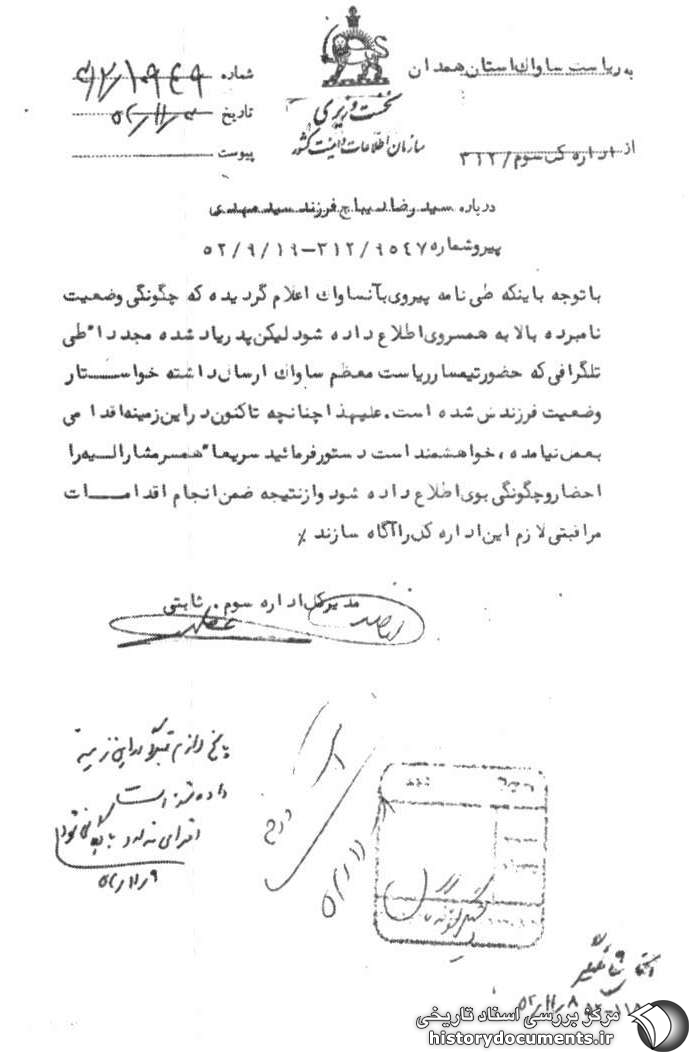 به ریاست ساواک استان همدان
نخست وزیری
سازمان اطلاعات و امنیت کشور
از اداره کل سوم/۳۱۲
شماره ۳۱۲/۱۰۹۴۹
تاریخ
پیوست
درباره سید رضا دیباج فرزند سید مهدی
پیرو شماره ۳۱۲/۹۵۴۷-۵۲/۹/۱۹
با توجه باینکه طی نامه پیروی بآنساواک اعلام گردیده که چگونگی وضعیت
نامبرده بالا به همسر وی اطلاع داده شود لیکن پدر یاد شده مجددا" طی
تلگرافی که حضور تیمسار ریاست معظم ساواک ارسال داشته خواستار
وضعیت فرزندش شده است. علیهذا چنانچه تاکنون در این زمینه اقدامی
بعمل نیامده، خواهشمند است دستور فرمائید سریعا" همسر مشارالیه را
احضار و چگونگی بوی اطلاع داده شود و از نتیجه ضمن انجام اقدامات
مراقبتی لازم این اداره کل را آگاه سازند ٪
مدیر کل اداره سوم. ثابتی
داده شده است
مرکز بررسی اسناد تاریخی
historydocuments.ir